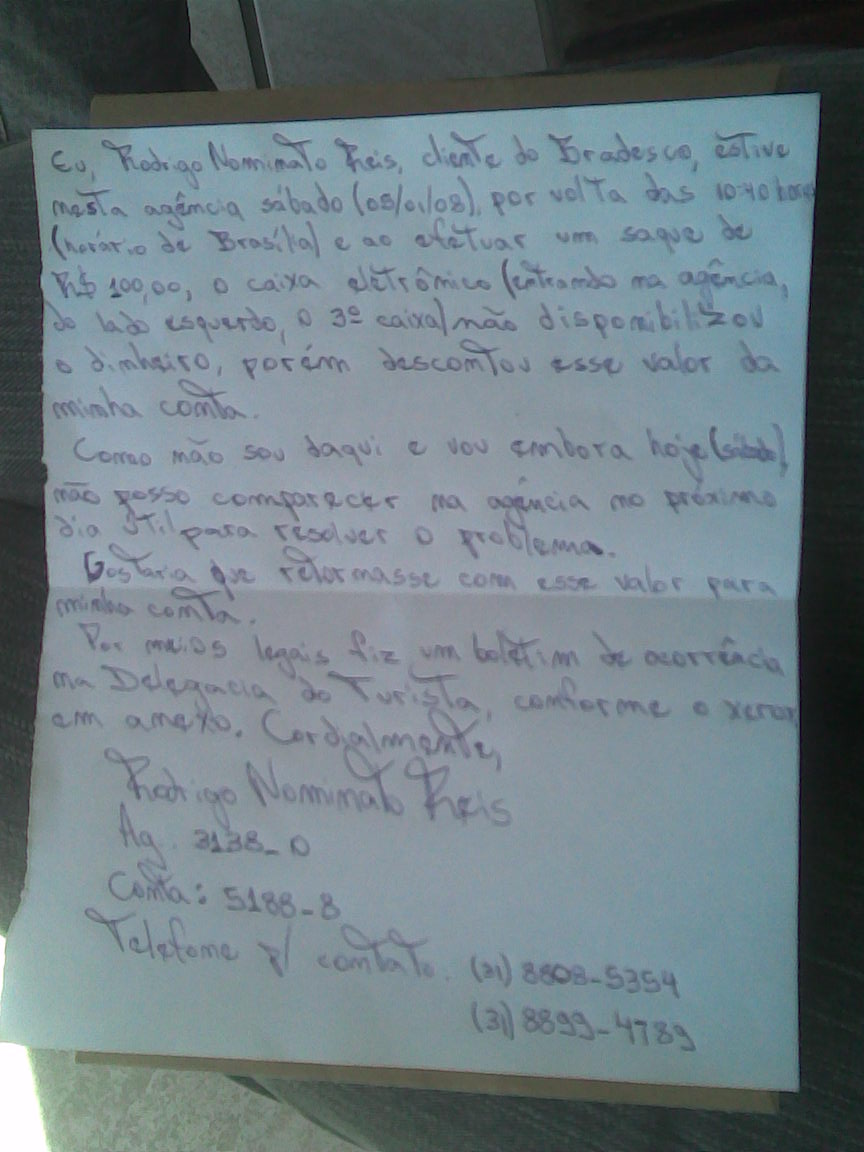 Eu, Rodrigo Nominato Reis, cliente do Bradesco, estive
nesta agência sábado (05/01/08), por volta das 10:40 horas
(horário de Brasília) e ao efetuar um saque de
R$ 100,00, o caixa eletrônico (entrando na agência,
do lado esquerdo, o 3º caixa) não disponibilizou
o dinheiro, porém descontou esse valor da
minha conta.
Como não sou daqui e vou embora hoje (sábado)
não posso comparecer na agência no próximo
dia útil para resolver o problema.
Gostaria que retornasse com esse valor para
minha conta.
Por meios legais fiz um boletim de ocorrência
na Delegacia do Turista, conforme o xerox
em anexo. Cordialmente,
Rodrigo Nominato Reis
Ag. 3138-0
Conta: 5188-8
Telefone p/ contato. (31) 8808-5354
(31) 8899-4789